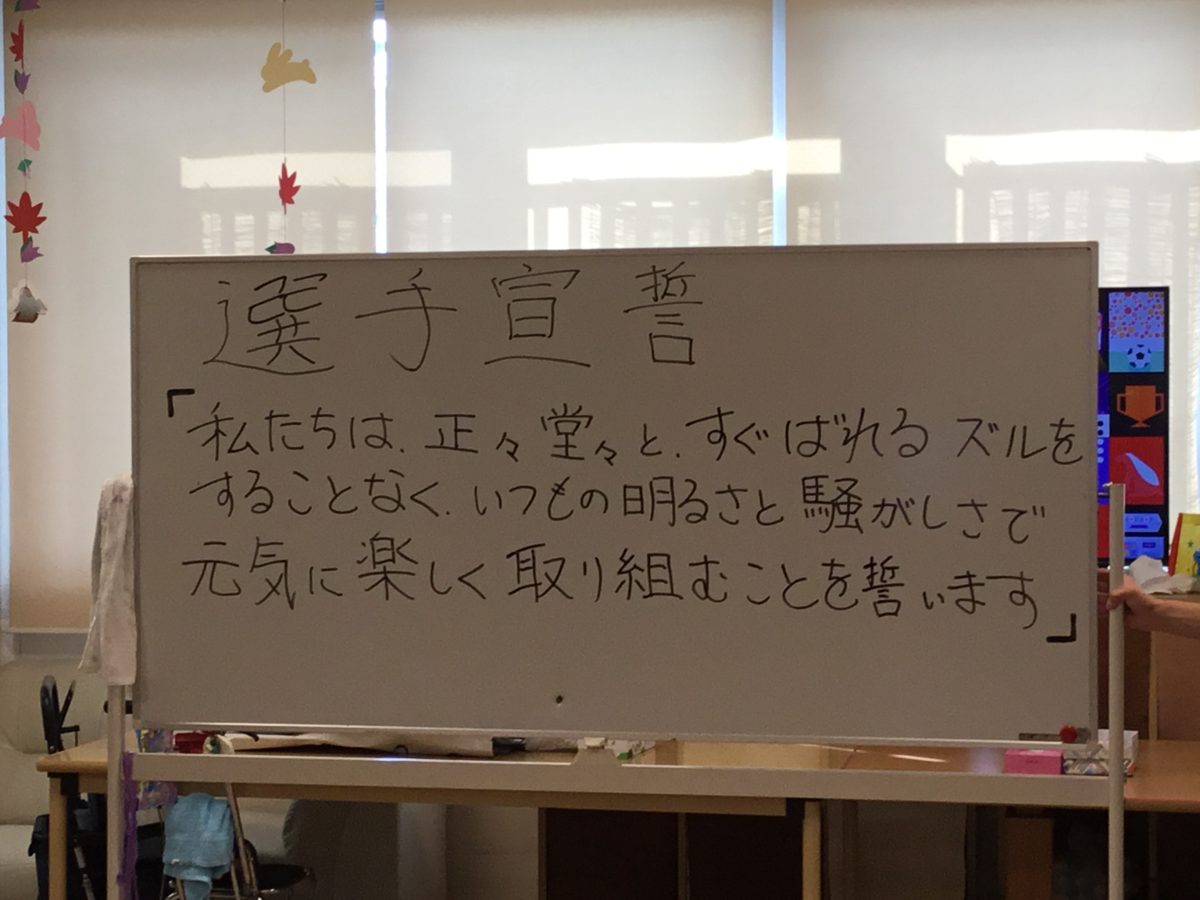 選手宣誓
「私たちは、正々堂々と、すぐばれるズルを
することなく、いつもの明るさと騒がしさで
元気に楽しく取り組むことを誓います」